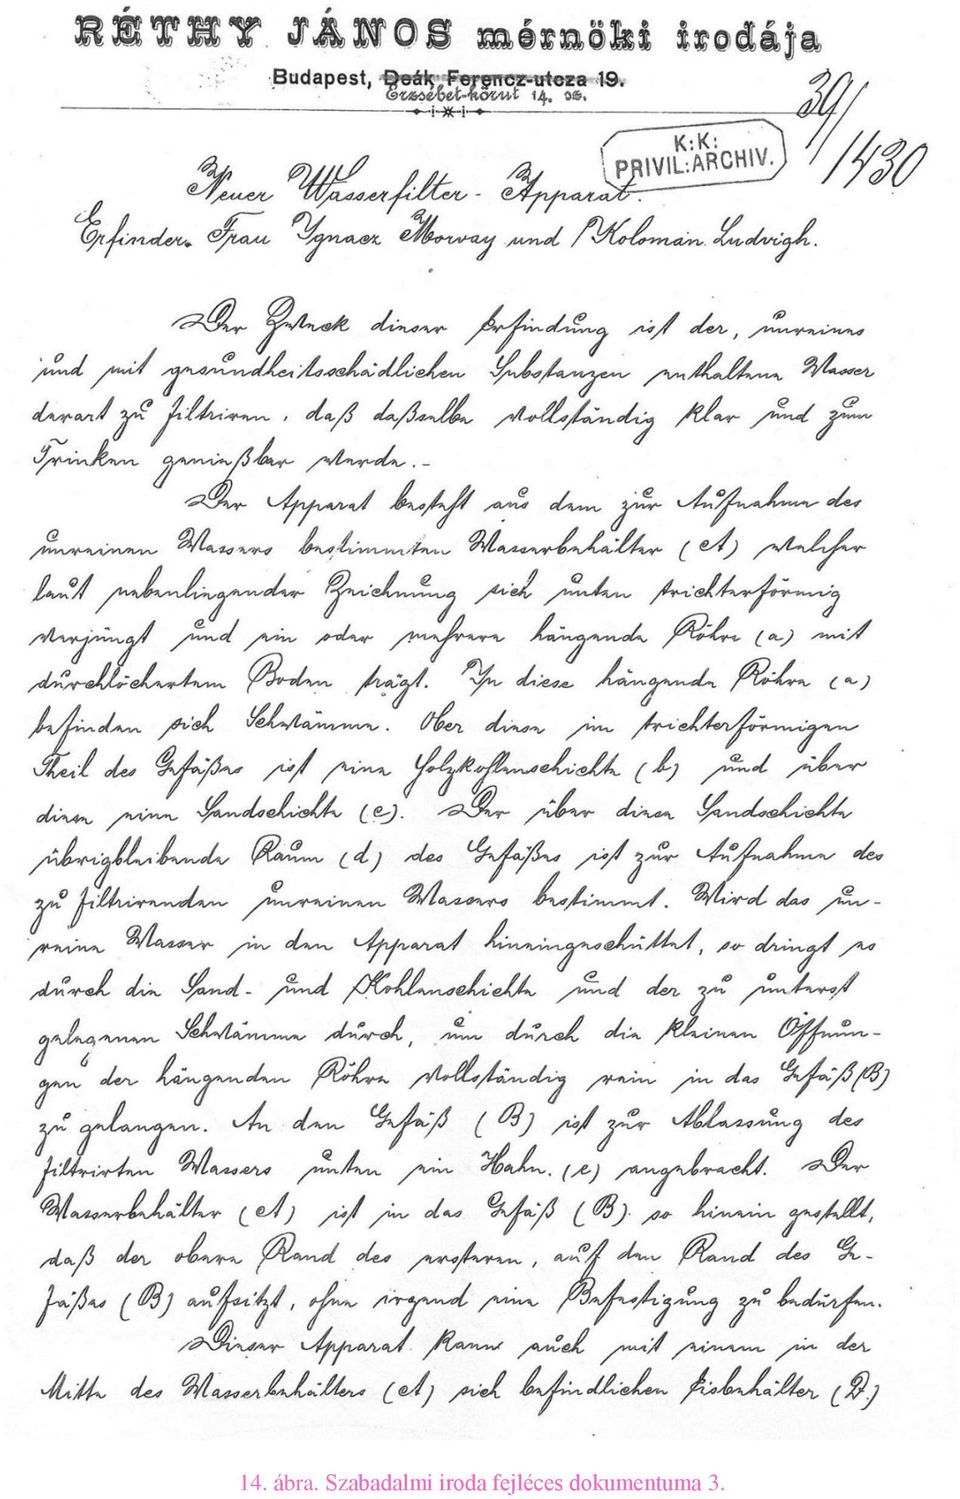 RÉTHY JÁNOS mérnöki irodája
Budapest, Deák Ferencz-utcza 19.
Erzsébet-körut 14. sz.
39/
/1430
K:K:
PRIVIL:ARCHIV.
Neuer Wasserfilter-Apparat.
Erfinder. Frau Ygnacz Morvay und Koloman Ludvigh.
Der Zweck dieser Erfindung ist der, unreines
und mit gesundheitsschädlichen Substanzen enthaltene Wasser
derart zu filtriren, daß daßselbe vollständig klar und zum
Trinken genießbar werde.-
Der Apparat besteht aus dem zur Aufnahme des
unreinen Wassers bestimmten Wasserbehälter (A) welcher
laut nebenliegender Zeichnung sich unten trichterförmig
verjüngt und ein oder mehrere hängende Röhre (a) mit
durchlöchertem Boden trägt. Yn diese hängende Röhre (a)
befinden sich Schwämme. Ober diese im trichterförmigen
Theil des Gefäßes ist eine Holzkohlenschichte (b) und über
diese eine Sandschichte (c). Der über diese Sandschichte
übrigbleibende Raum (d) des Gefäßes ist zur Aufnahme des
zu filtrirenden unreinen Wassers bestimmt. Wird das un-
reine Wasser in den Apparat hineingeschüttet, so dringt es
durch die Sand- und Kohlenschichte und der zu unterst
gelegenen Schwämme durch, um durch die kleinen Öffnun-
gen der hängenden Röhre vollständig rein in das Gefäß (B)
zu gelangen. An den Gefäß (B) ist zur Ablassung des
filtrirten Wassers unten ein Hahn. (e) angebracht. Der
Wasserbehälter (A) ist in das Gefäß (B) so hinein gestellt,
daß der obere Rand des ersteren, auf den Rand des Ge-
fäßes (B) aufsitzt, ohne irgend eine Befestigung zu bedürfen.
Dieser Apparat kann auch mit einem in der
Mitte des Wasserbehälters (A) sich befindlichen Eisbehälter (D.)
14. ábra. Szabadalmi iroda fejléces dokumentuma 3.